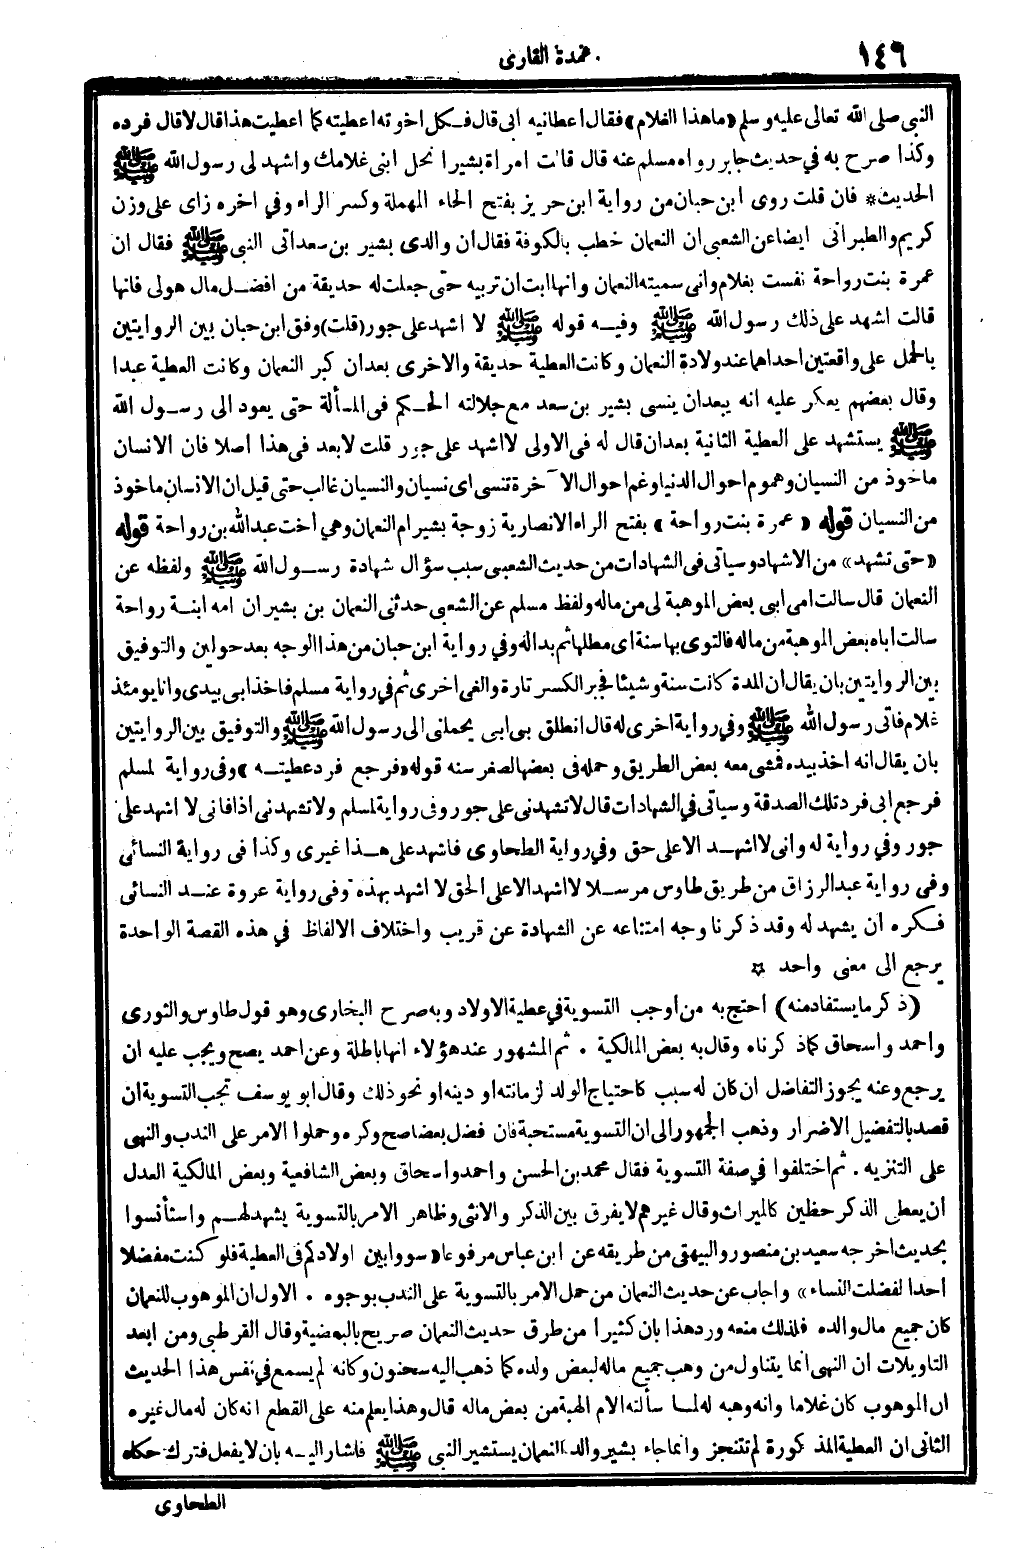 ١٤٦
عمدة القارى
النبى صلى الله تعالى عليه وسلم «ماهذا الغلام» فقال اعطانيه ابى قال فكل اخوته اعطيته كما اعطيت هذا قال لا قال فرده
وكذا صرح به في حديث جابر رواه مسلم عنه قال قالت امراة بشير انحل ابنى غلامك واشهد لى رسول الله ﷺ
الحديث* فان قلت روى ابن حبان من رواية ابن حريز بفتح الحاء المهملة وكسر الراء وفي اخره زاى على وزن
كريم والطبرانى ايضا عن الشعبى ان النعمان خطب بالكوفة فقال ان والدى بشير بن سعد اتى النبى ﷺ فقال ان
عمرة بنت رواحة نفست بغلام وانى سميته النعمان وانها ابت ان تربيه حتى جعلت له حديقة من افضل مال هولى فانها
قالت اشهد على ذلك رسول الله ﷺ وفيه قوله ﷺ لا اشهد على جور (قلت) وفق ابن حبان بين الروايتين
بالحمل على واقعتين احداهما عند ولادة النعمان وكانت العطية حديقة والاخرى بعدان كبر النعمان وكانت العطية عبدا
وقال بعضهم يعكر عليه انه يبعدان ينسى بشير بن سعد مع جلالته الحكم فى المسألة حتى يعود الى رسول الله
ﷺ يستشهد على العطية الثانية بعدان قال له فى الاولى لا اشهد على جور قلت لابعد فى هذا اصلا فان الانسان
ماخوذ من النسيان وهموم احوال الدنيا وغم احوال الآخرة تنسى اى نسيان والنسيان غالب حتى قيل ان الانسان ماخوذ
من النسيان قوله «عمرة بنت رواحة» بفتح الراء الانصارية زوجة بشير ام النعمان وهي أخت عبدالله بن رواحة قوله
«حتى تشهد» من الاشهاد وسياتى فى الشهادات من حديث الشعبى سبب سؤال شهادة رسول الله ﷺ ولفظه عن
النعمان قال سالت امى ابى بعض الموهبة لى من ماله ولفظ مسلم عن الشعبى حدثنى النعمان بن بشير ان امه ابنة رواحة
سالت اباه بعض الموهبة من ماله فالتوى بها سنة اى مطلها ثم بداله وفي رواية ابن حبان من هذا الوجه بعد حولين والتوفيق
بين الروايتين بان يقال ان المدة كانت سنة وشيئا فجبر الكسر تارة والغى اخرى ثم في رواية مسلم فاخذ ابى بيدى وانا يومئذ
غلام فاتى رسول الله ﷺ وفي رواية اخرى له قال انطلق بى ابى يحملنى الى رسول الله ﷺ والتوفيق بين الروايتين
بان يقال انه اخذ بيده فمشى معه بعض الطريق وحمله فى بعضها لصغر سنه قوله «فرجع فرد عطيته» وفى رواية لمسلم
فرجع ابى فرد تلك الصدقة وسياتى في الشهادات قال لا تشهدنى على جور وفى رواية لمسلم ولا تشهدنى اذا فانى لا اشهد على
جور وفي رواية له وانى لا اشهد الا على حق وفي رواية الطحاوى فاشهد على هذا غيرى وكذا فى رواية النسائى
وفى رواية عبد الرزاق من طريق طاوس مرسلا لا اشهد الا على الحق لا اشهد بهذه وفى رواية عروة عند النسائى
فكره أن يشهد له وقد ذكرنا وجه امتناعه عن الشهادة عن قريب واختلاف الالفاظ في هذه القصة الواحدة
يرجع الى معنى واحد ✩
(ذكر ما يستفاد منه) احتج به من أوجب التسوية في عطية الاولاد وبه صرح البخارى وهو قول طاوس والثورى
واحمد واسحاق كما ذكرناه وقال به بعض المالكية . ثم المشهور عند هؤلاء انها باطلة وعن احمد يصح ويجب عليه ان
يرجع وعنه يجوز التفاضل ان كان له سبب كاحتياج الولد لزمانته او دينه او نحو ذلك وقال ابو يوسف تجب التسوية ان
قصد بالتفضيل الاضرار وذهب الجمهور الى ان التسوية مستحبة فان فضل بعضا صح وكره وحملوا الامر على الندب والنهى
على التنزيه . ثم اختلفوا في صفة التسوية فقال محمد بن الحسن واحمد واسحاق وبعض الشافعية وبعض المالكية العدل
أن يعطى الذكر حظين كالميراث وقال غيرهم لا يفرق بين الذكر والانثى وظاهر الامر بالتسوية يشهد لهم واستأنسوا
بحديث اخرجه سعيد بن منصور والبيهقى من طريقه عن ابن عباس مرفوعا «سووا بين اولادكم فى العطية فلو كنت مفضلا
أحدا لفضلت النساء» واجاب عن حديث النعمان من حمل الامر بالتسوية على الندب بوجوه . الاول ان الموهوب للنعمان
كان جميع مال والده فلذلك منعه ورد هذا بان كثيرا من طرق حديث النعمان صريح بالبعضية وقال القرطبى ومن ابعد
التاويلات ان النهى انما يتناول من وهب جميع ماله لبعض ولده كما ذهب اليه سحنون وكانه لم يسمع في نفس هذا الحديث
ان الموهوب كان غلاما وانه وهبه له لما سألته الام الهبة من بعض ماله قال وهذا يعلم منه على القطع انه كان له مال غيره
الثانى ان العطية المذكورة لم تتنجز وانما جاء بشير والد النعمان يستشير النبى ﷺ فاشار اليه بان لا يفعل فترك حكاه
الطحاوى